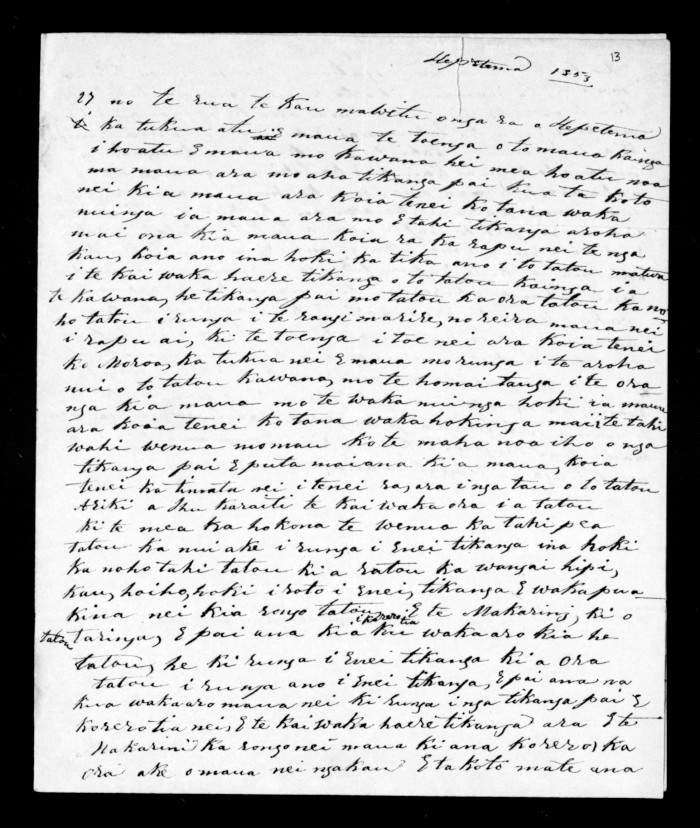 13
Hepetema 1853
27 no te rua te kau mawitu o nga ra o Hepetema
ka tukua atu E maua te toenga o to maua kainga
i hoatu E maua mo kawana hei mea hoatu noa
ma maua ara mo aha tikanga pai kua ta koto
nei ki a maua ara koia tenei ko tana waka
nuinga i a maua ara mo Etahi tikanga aroha
mai ona kia maua koia ra ka rapu nei te nga
kau, koia ano ina hoki ka tika ano i to tatou matua
i te kai waka haere tikanga o to tatou kainga i a
te kawana, he tikanga pai mo tatou ka ora tatou ka no
ho tatou i runga i te rangimarire, no reira maua nei
i rapu ai, ki te toenga i toe nei ara koia tenei
ko Moroa, ka tukua nei E maua mo runga i te aroha
nui o to tatou kawana, mo te homai tanga i te ora
nga kia maua mo te waka nuinga hoki i a maua
ara koia tenei ko tana waka hokinga mai i te tahi
wahi wenua mo mau ko te maha noa iho o nga
tikanga pai E puta mai ana ki a maua, koia
tenei ka timata nei i tenei ra, ara i nga tau o to tatou
Ariki a Ihu karaiti te kai waka ora i a tatou
ki te mea ka hokona te wenua ka tahi pea
tatou ka nui ake i runga i Enei tikanga ina hoki
ka noho tahi tatou ki a ratou ka wangai hipi,
kau, hoiho, hoki i roto i Enei, tikanga E waka pua
kina nei kia rongo tatou, i korerotia E te Makarini, ki o
tatou taringa, E pai ana kia kui wakaaro kia he
tatou, he ki runga i Enei tikanga ki a ora
tatou i runga ano i Enei tikanga, E pai ana na
kua wakaaro maua nei ki runga i nga tikanga pai E
korerotia nei, E te kai waka haere tikanga ara E te
Makarini ka rongo nei maua ki ana korero, ka
ora ake o maua nei ngakau E takoto mate ana